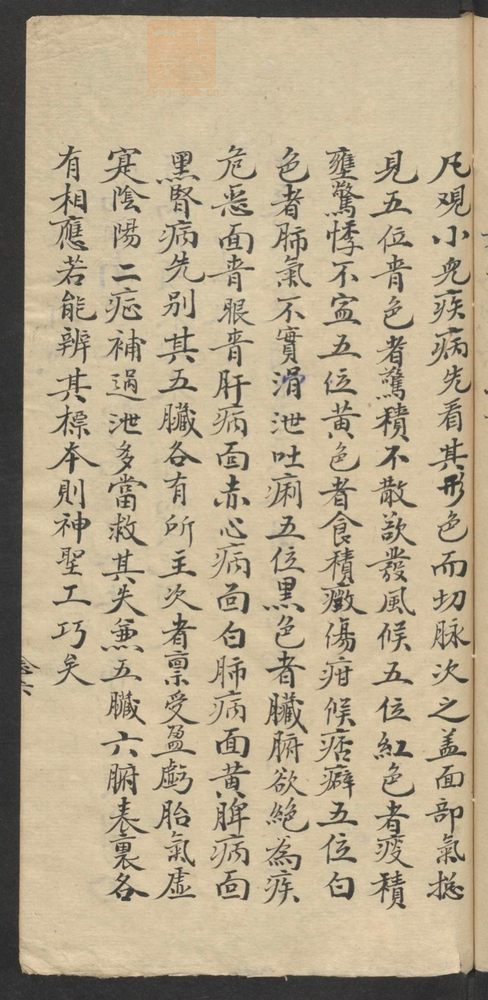 凡觀小兒疾病先看其形色而切脉次之盖面部氣摠
見五位青色者驚積不散欲發風候五位紅色者痰積
壅驚悸不寍五位黃色者食積癥傷疳候痞癖五位白
色者肺氣不實滑泄吐痢五位黑色者臟腑欲絕為疾
危惡面青眼青肝病面赤心病面白肺病面黃脾病面
黑腎病先別其五臟各有所主次者禀受盈虧胎氣虛
寔陰陽二症補過泄多當救其失兼五臟六腑表裏各
有相應若能辨其標本則神聖工巧矣